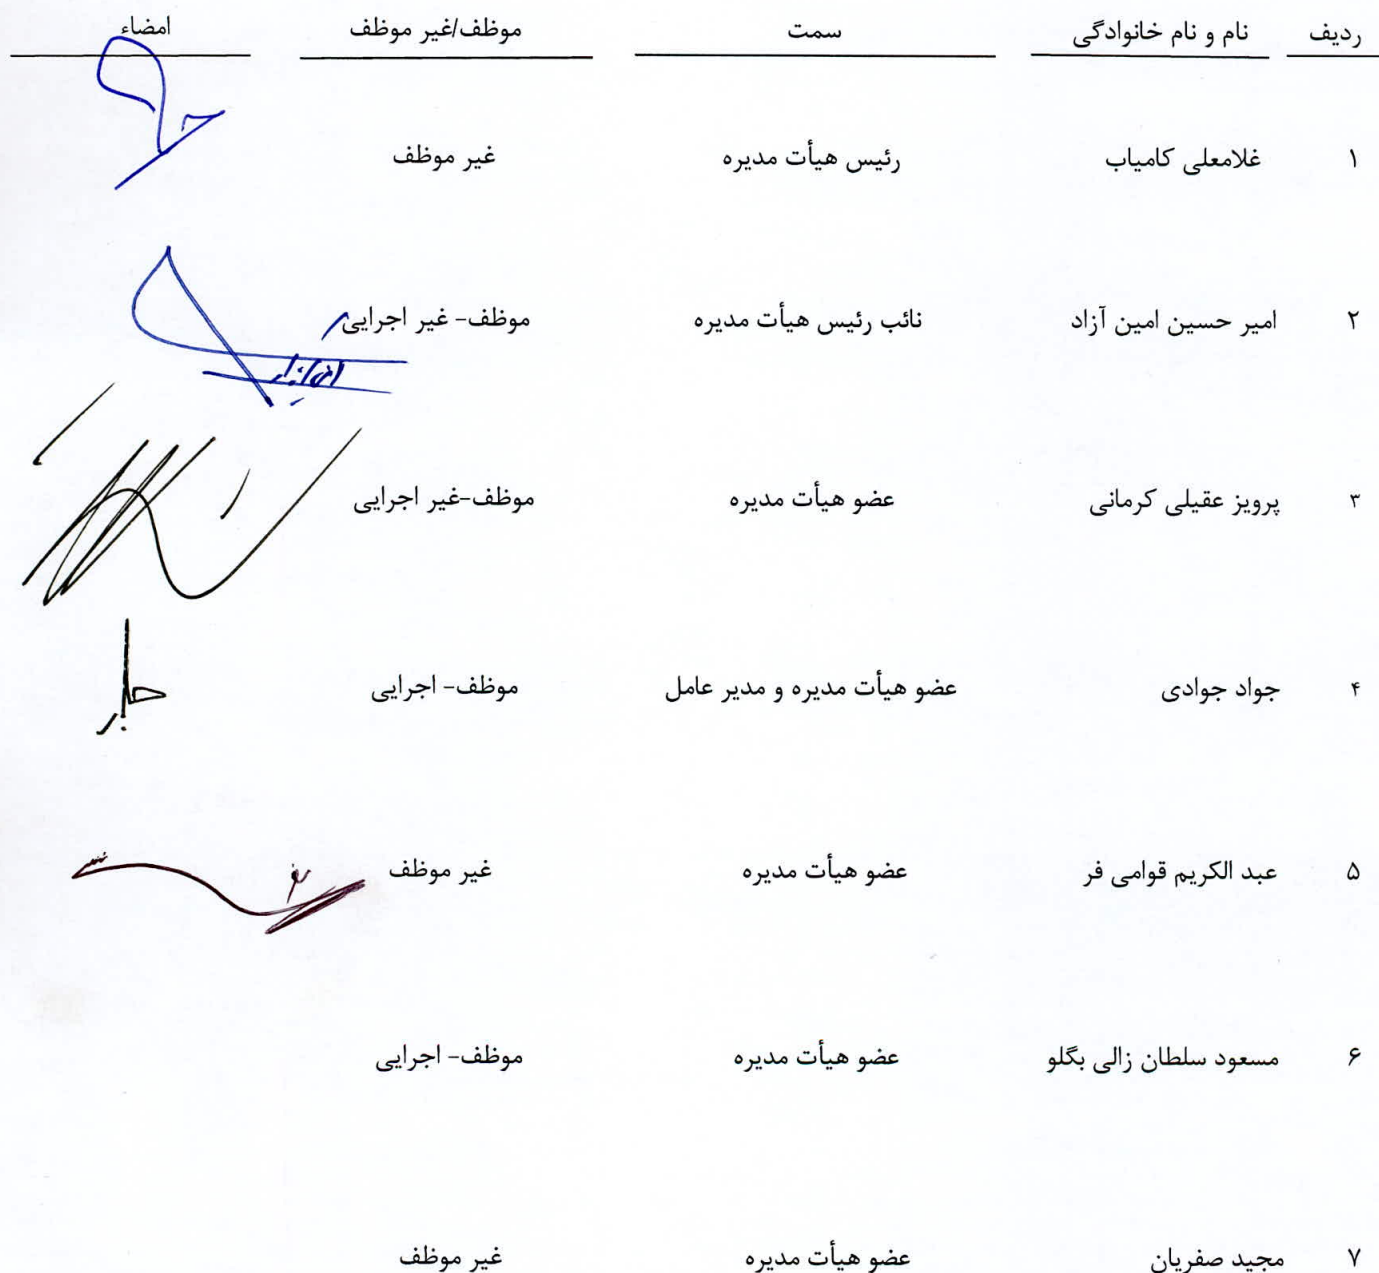 ردیف نام و نام خانوادگی سمت موظف/غیر موظف امضاء
۱ غلامعلی کامیاب رئیس هیأت مدیره غیر موظف
۲ امیر حسین امین آزاد نائب رئیس هیأت مدیره موظف- غیر اجرایی
۳ پرویز عقیلی کرمانی عضو هیأت مدیره موظف-غیر اجرایی
۴ جواد جوادی عضو هیأت مدیره و مدیر عامل موظف- اجرایی
۵ عبد الکریم قوامی فر عضو هیأت مدیره غیر موظف
۶ مسعود سلطان زالی بگلو عضو هیأت مدیره موظف- اجرایی
۷ مجید صفریان عضو هیأت مدیره غیر موظف